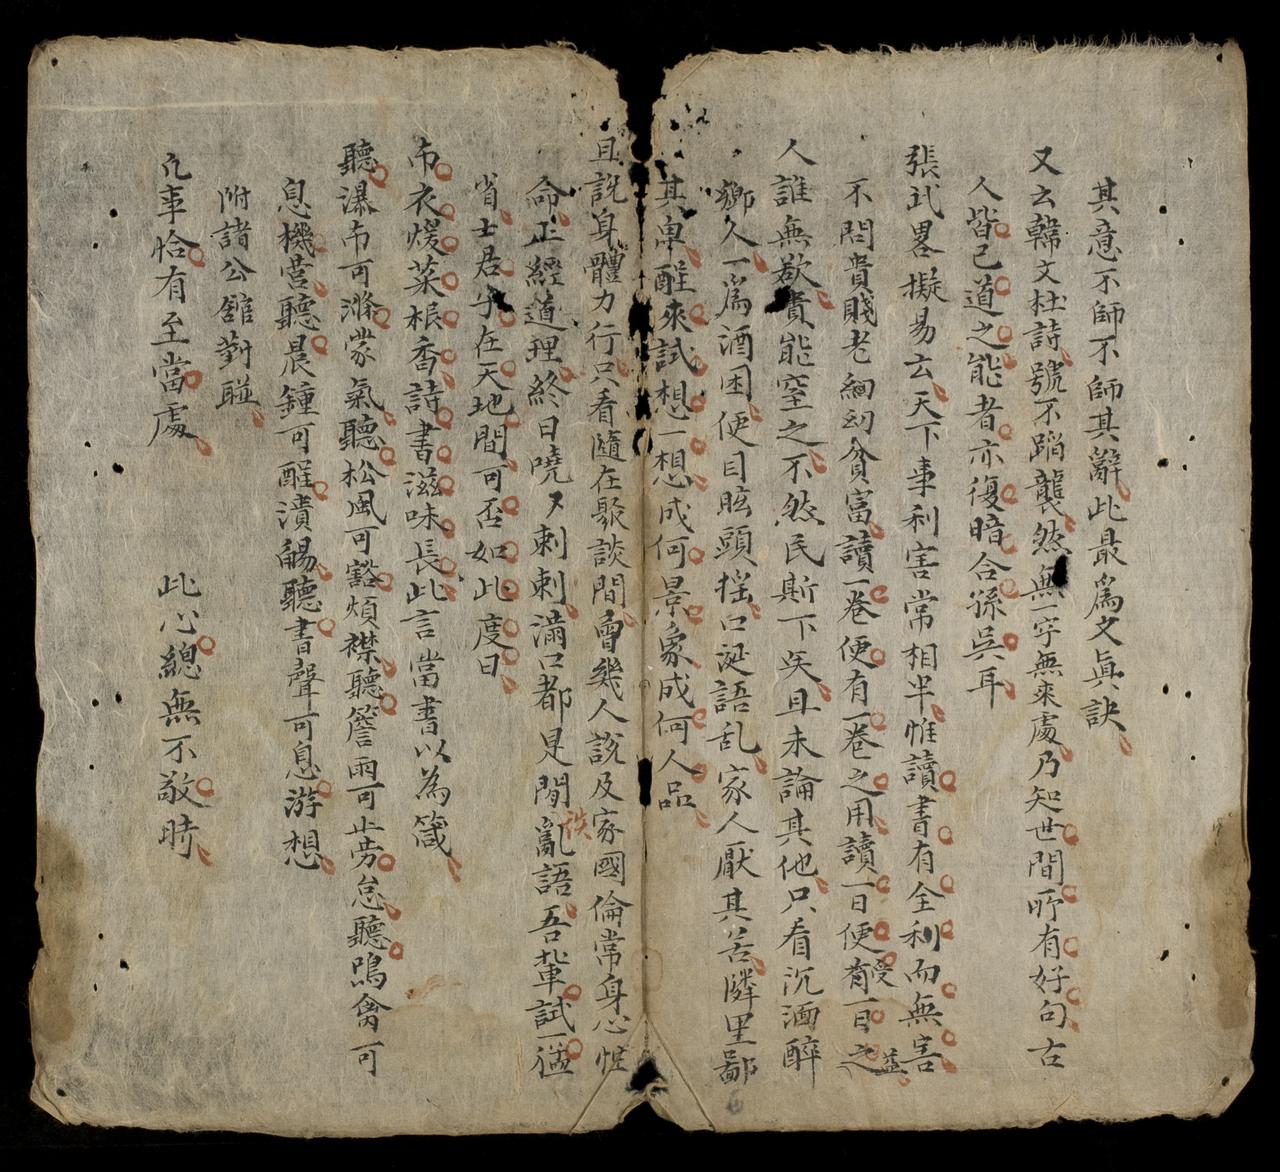 其意不師不師其辭此最爲文眞訣
又云韓文杜詩號不蹈襲然無一字無來處乃知世間所有好句古
人皆已道之能者亦復暗合孫吳耳
張武畧擬易云天下事利害常相半惟讀書有全利而無害
不問貴賤老細幼貧富讀一卷便有一卷之用讀一日便有一日之
受
益
人誰無欲貴能窒之不然民斯下矣且未論其他只看沉酒醉
鄉久一爲酒困便目眩頭搖口涎語乱家人厭其苦隣里鄙
其卑醒來試想一想成何景象成何人品
且說身體力行只看隨在聚談間曾幾人說及家國倫常身心性
命正經道理終日嘵々刺刺滿口都是閒亂語吾輩試一猛
省士君子在天地間可否如此度日
布衣煖菜根香詩書滋味長此言當書以為箴
聽瀑布可滌蒙氣聽松風可豁煩襟聽簷雨可止劳怠聽鳴禽可
息機營聽晨鍾可醒潰觴聽書聲可息游想
附諸公館對聯
凡事恰有至當處 此心總無不敬時